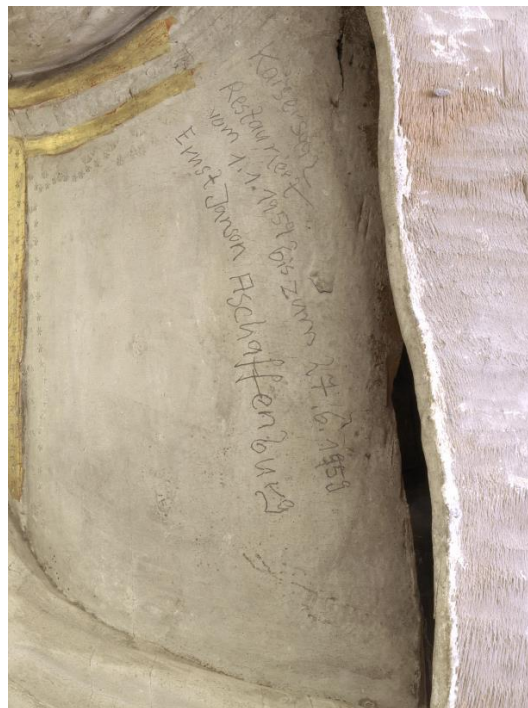 Kaisersaal
Restauriert
vom 1.1.1959 bis zum 27.6.1959
Ernst Janson Aschaffenburg